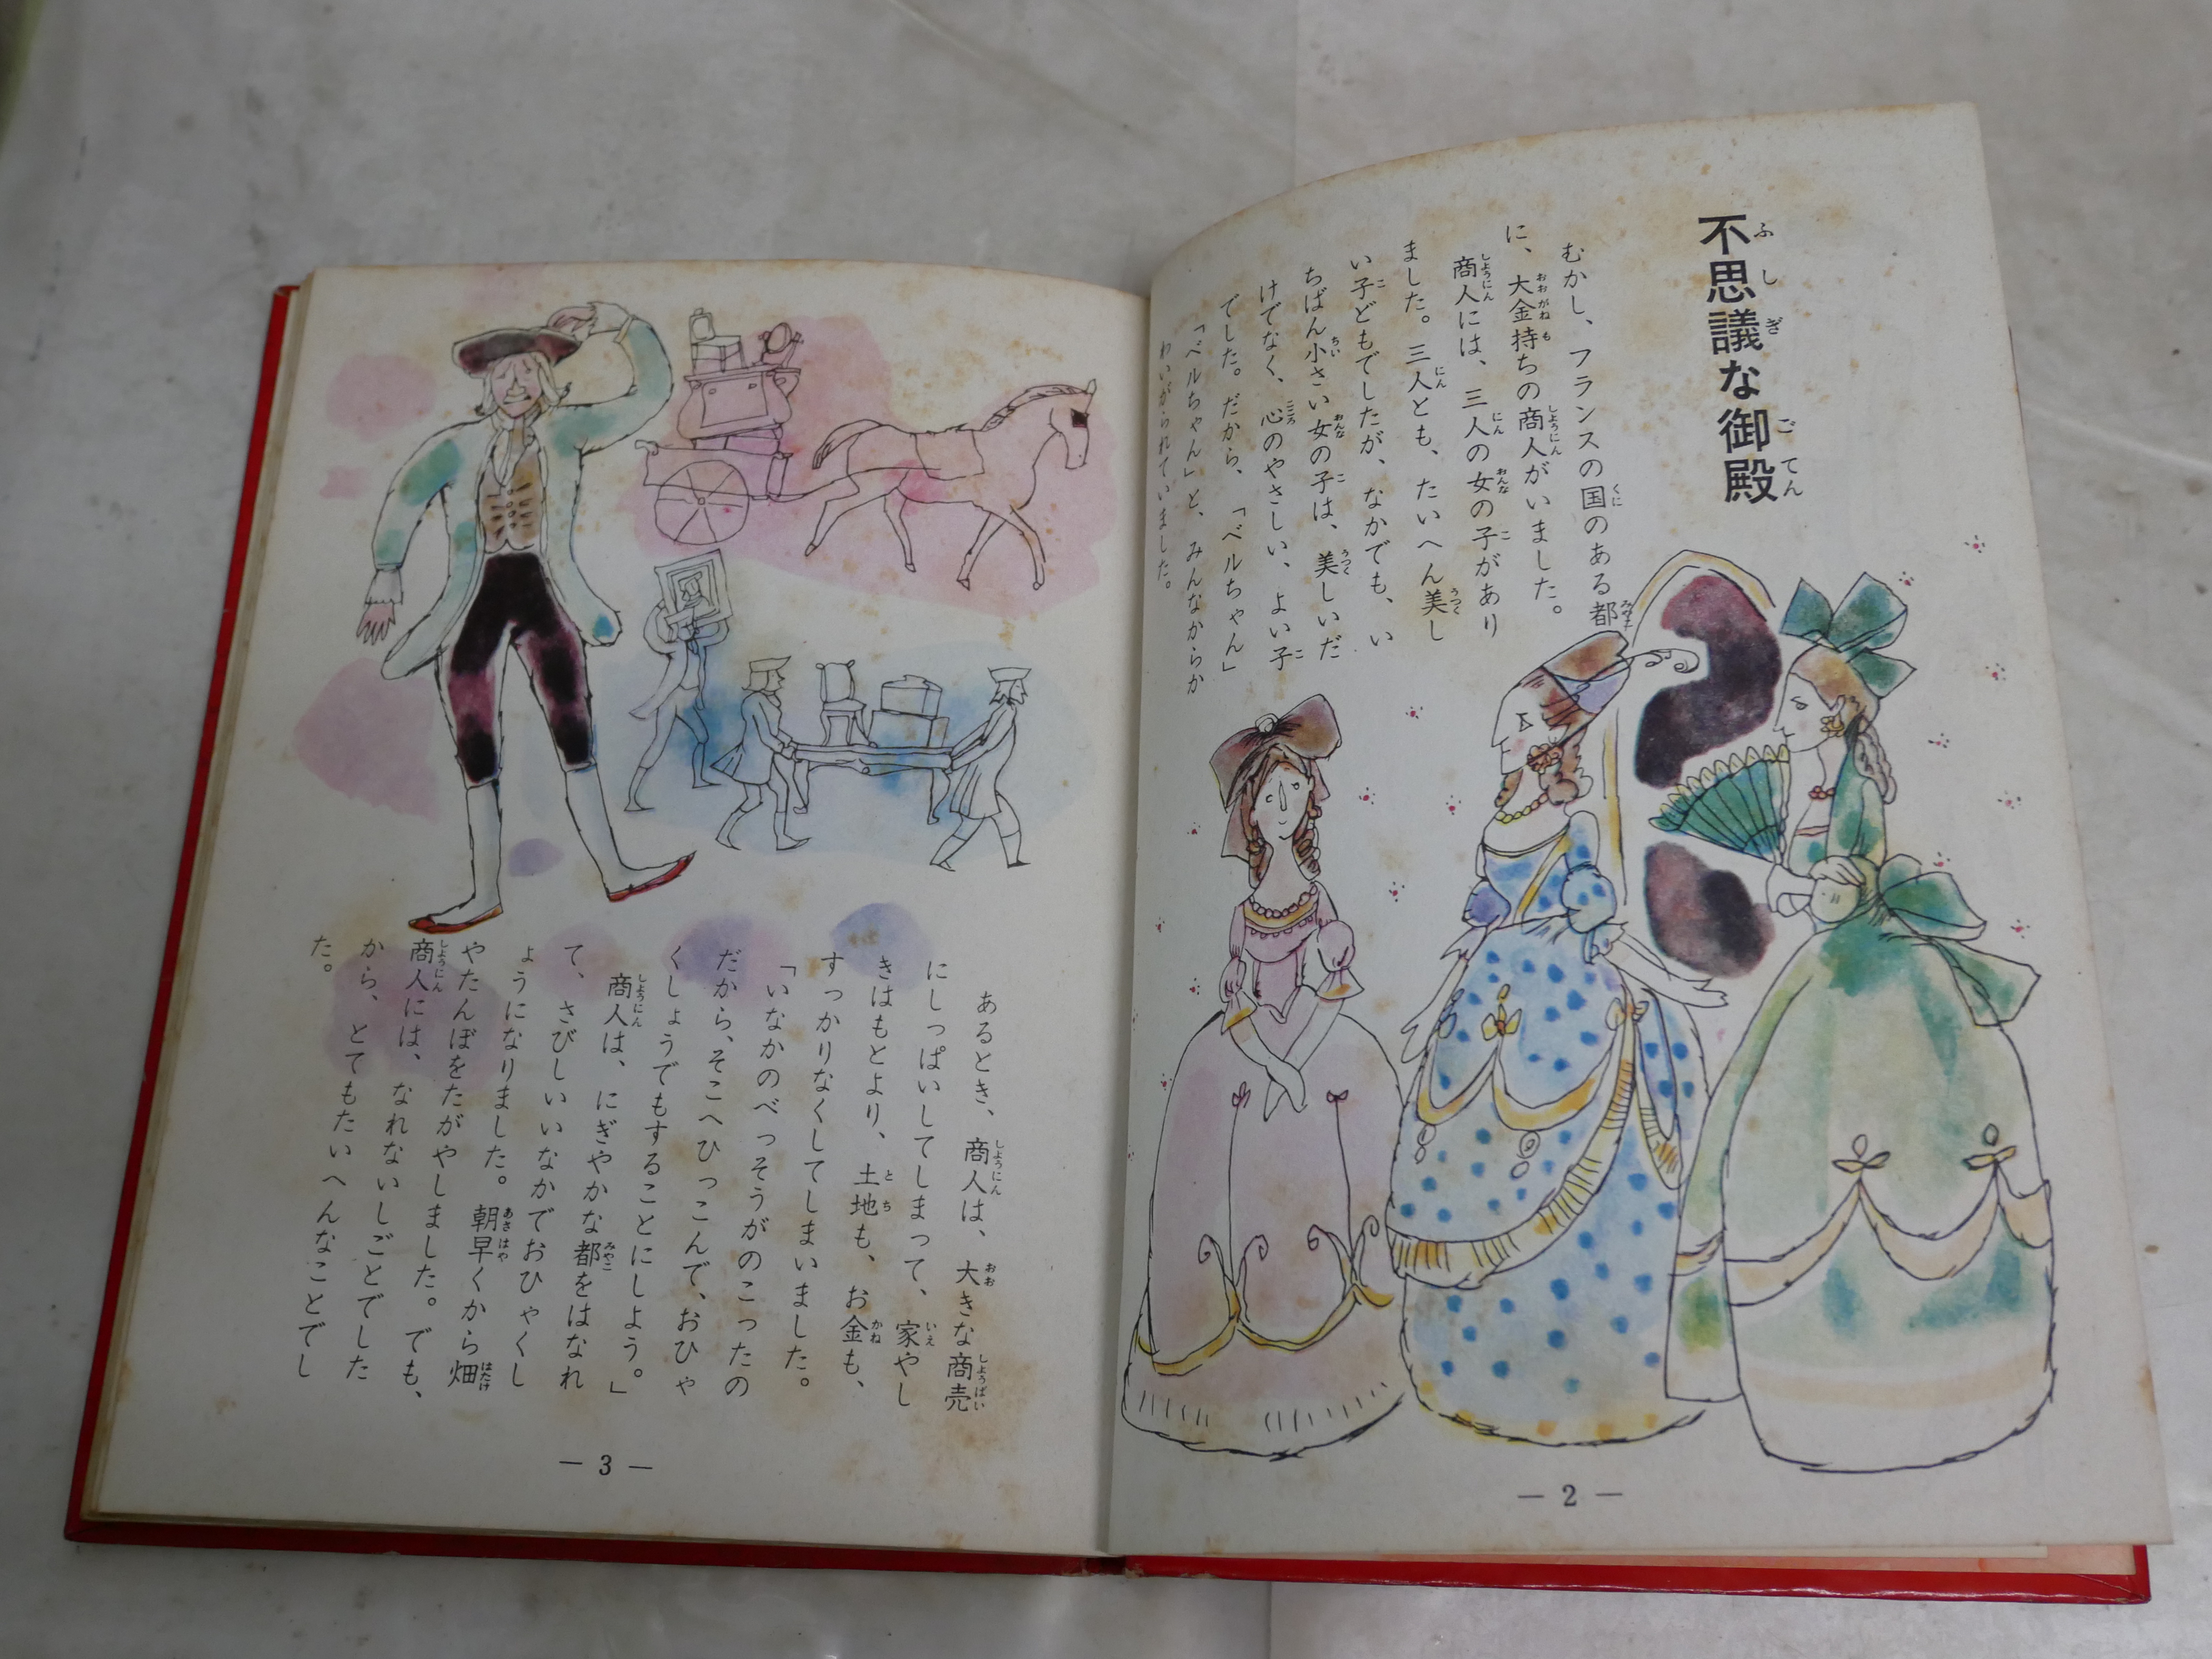 不思議な御殿
むかし、フランスの国のある都
に、大金持ちの商人がいました。
商人には、三人の女の子があり
ました。三人とも、たいへん美し
い子どもでしたが、なかでも、い
ちばん小さい女の子は、美しいだ
けでなく、心のやさしい、よい子
でした。だから、「ベルちゃん」
「ベルちゃん」と、みんなからか
わいがられていました。
— 2 —
あるとき、商人は、大きな商売
にしっぱいしてしまって、家やし
きはもとより、土地も、お金も、
すっかりなくしてしまいました。
「いなかのべっそうがのこったの
だから、そこへひっこんで、おひゃ
くしょうでもすることにしよう。」
商人は、にぎやかな都をはなれ
て、さびしいいなかでおひゃくし
ょうになりました。朝早くから畑
やたんぼをたがやしました。でも、
商人には、なれないしごとでした
から、とてもたいへんなことでし
た。
— 3 —